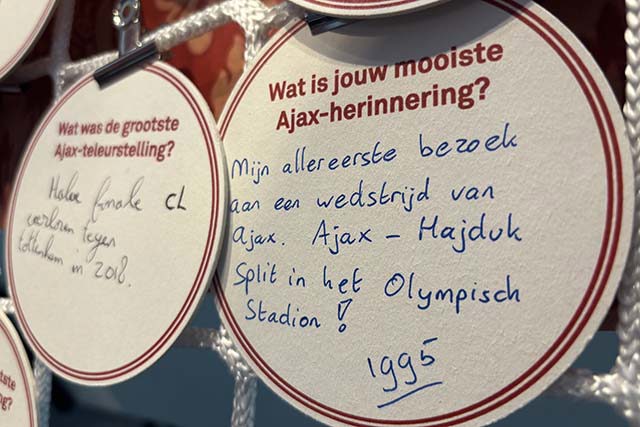 Wat was de grootste
Ajax-teleurstelling?
Halve finale CL
verloren tegen
tottenham in 2018.
Wat is jouw mooiste
Ajax-herinnering?
Mijn allereerste bezoek
aan een wedstrijd van
Ajax. Ajax - Hajduk
Split in het Olympisch
Stadion!
1995